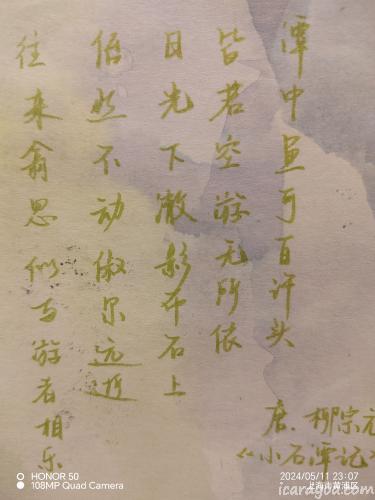 潭中鱼可百许头
皆若空游无所依
日光下澈影布石上
佁然不动俶尔远逝
往来翕忽似与游者相乐
唐.柳宗元
《小石潭记》
HONOR 50
108MP Quad Camera
2024/05/11 23:07
上海市黄浦区
icaragod.com